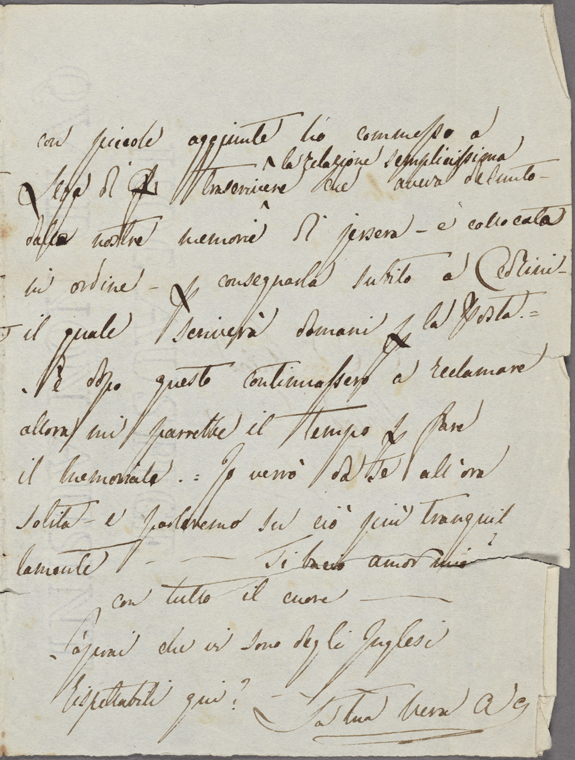 con piccole aggiunte ho commesso a
la relazione semplicissima
di trascrivere che aveva desunto
dalle nostre memorie di jersera - è collocata
in ordine - consegnarla subito a
il quale scriverà domani p la Posta. =
è dopo questo continuassero a reclamare
allora mi parrebbe il tempo p fare
il memoriale. = Io verrò da te all'ora
solita - e parleremo su ciò più tranquil
lamente - Ti bacio amor mio
con tutto il cuore
Saprai che vi sono degli Inglesi
rispettabili qui? - La tua vera A G